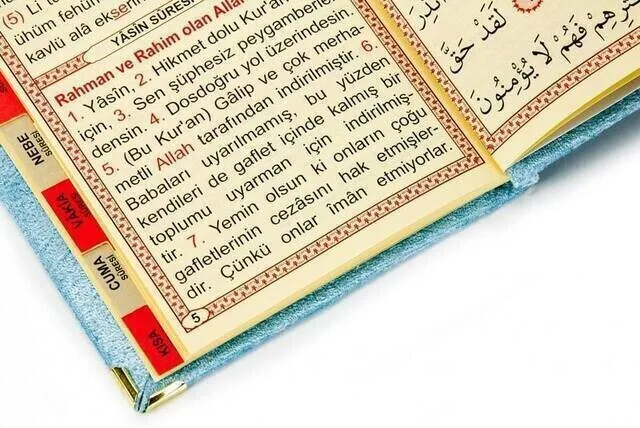 (5) Li
ühüm fehüm
kavlü alâ ekserih
YÂSÎN SÛRESİ
Rahman ve Rahim olan Allah
1. Yâsîn, 2. Hikmet dolu Kur'an
için, 3. Sen şüphesiz peygamberler
densin. 4. Dosdoğru yol üzerindesin.
5. (Bu Kur'an) Gâlip ve çok merha-
metli Allah tarafından indirilmiştir. 6.
Babaları uyarılmamış, bu yüzden
kendileri de gaflet içinde kalmış bir
toplumu uyarman için indirilmiş-
tir. 7. Yemin olsun ki onların çoğu
gafletlerinin cezâsını hak etmişler-
dir. Çünkü onlar îmân etmiyorlar.
5
NEBE
SÛRESİ
VÂKIA
SÛRESİ
CUMA
SÛRESİ
KISA
لَقَدْ حَقَّ
فَهُمْ لَا يُؤْمِنُونَ